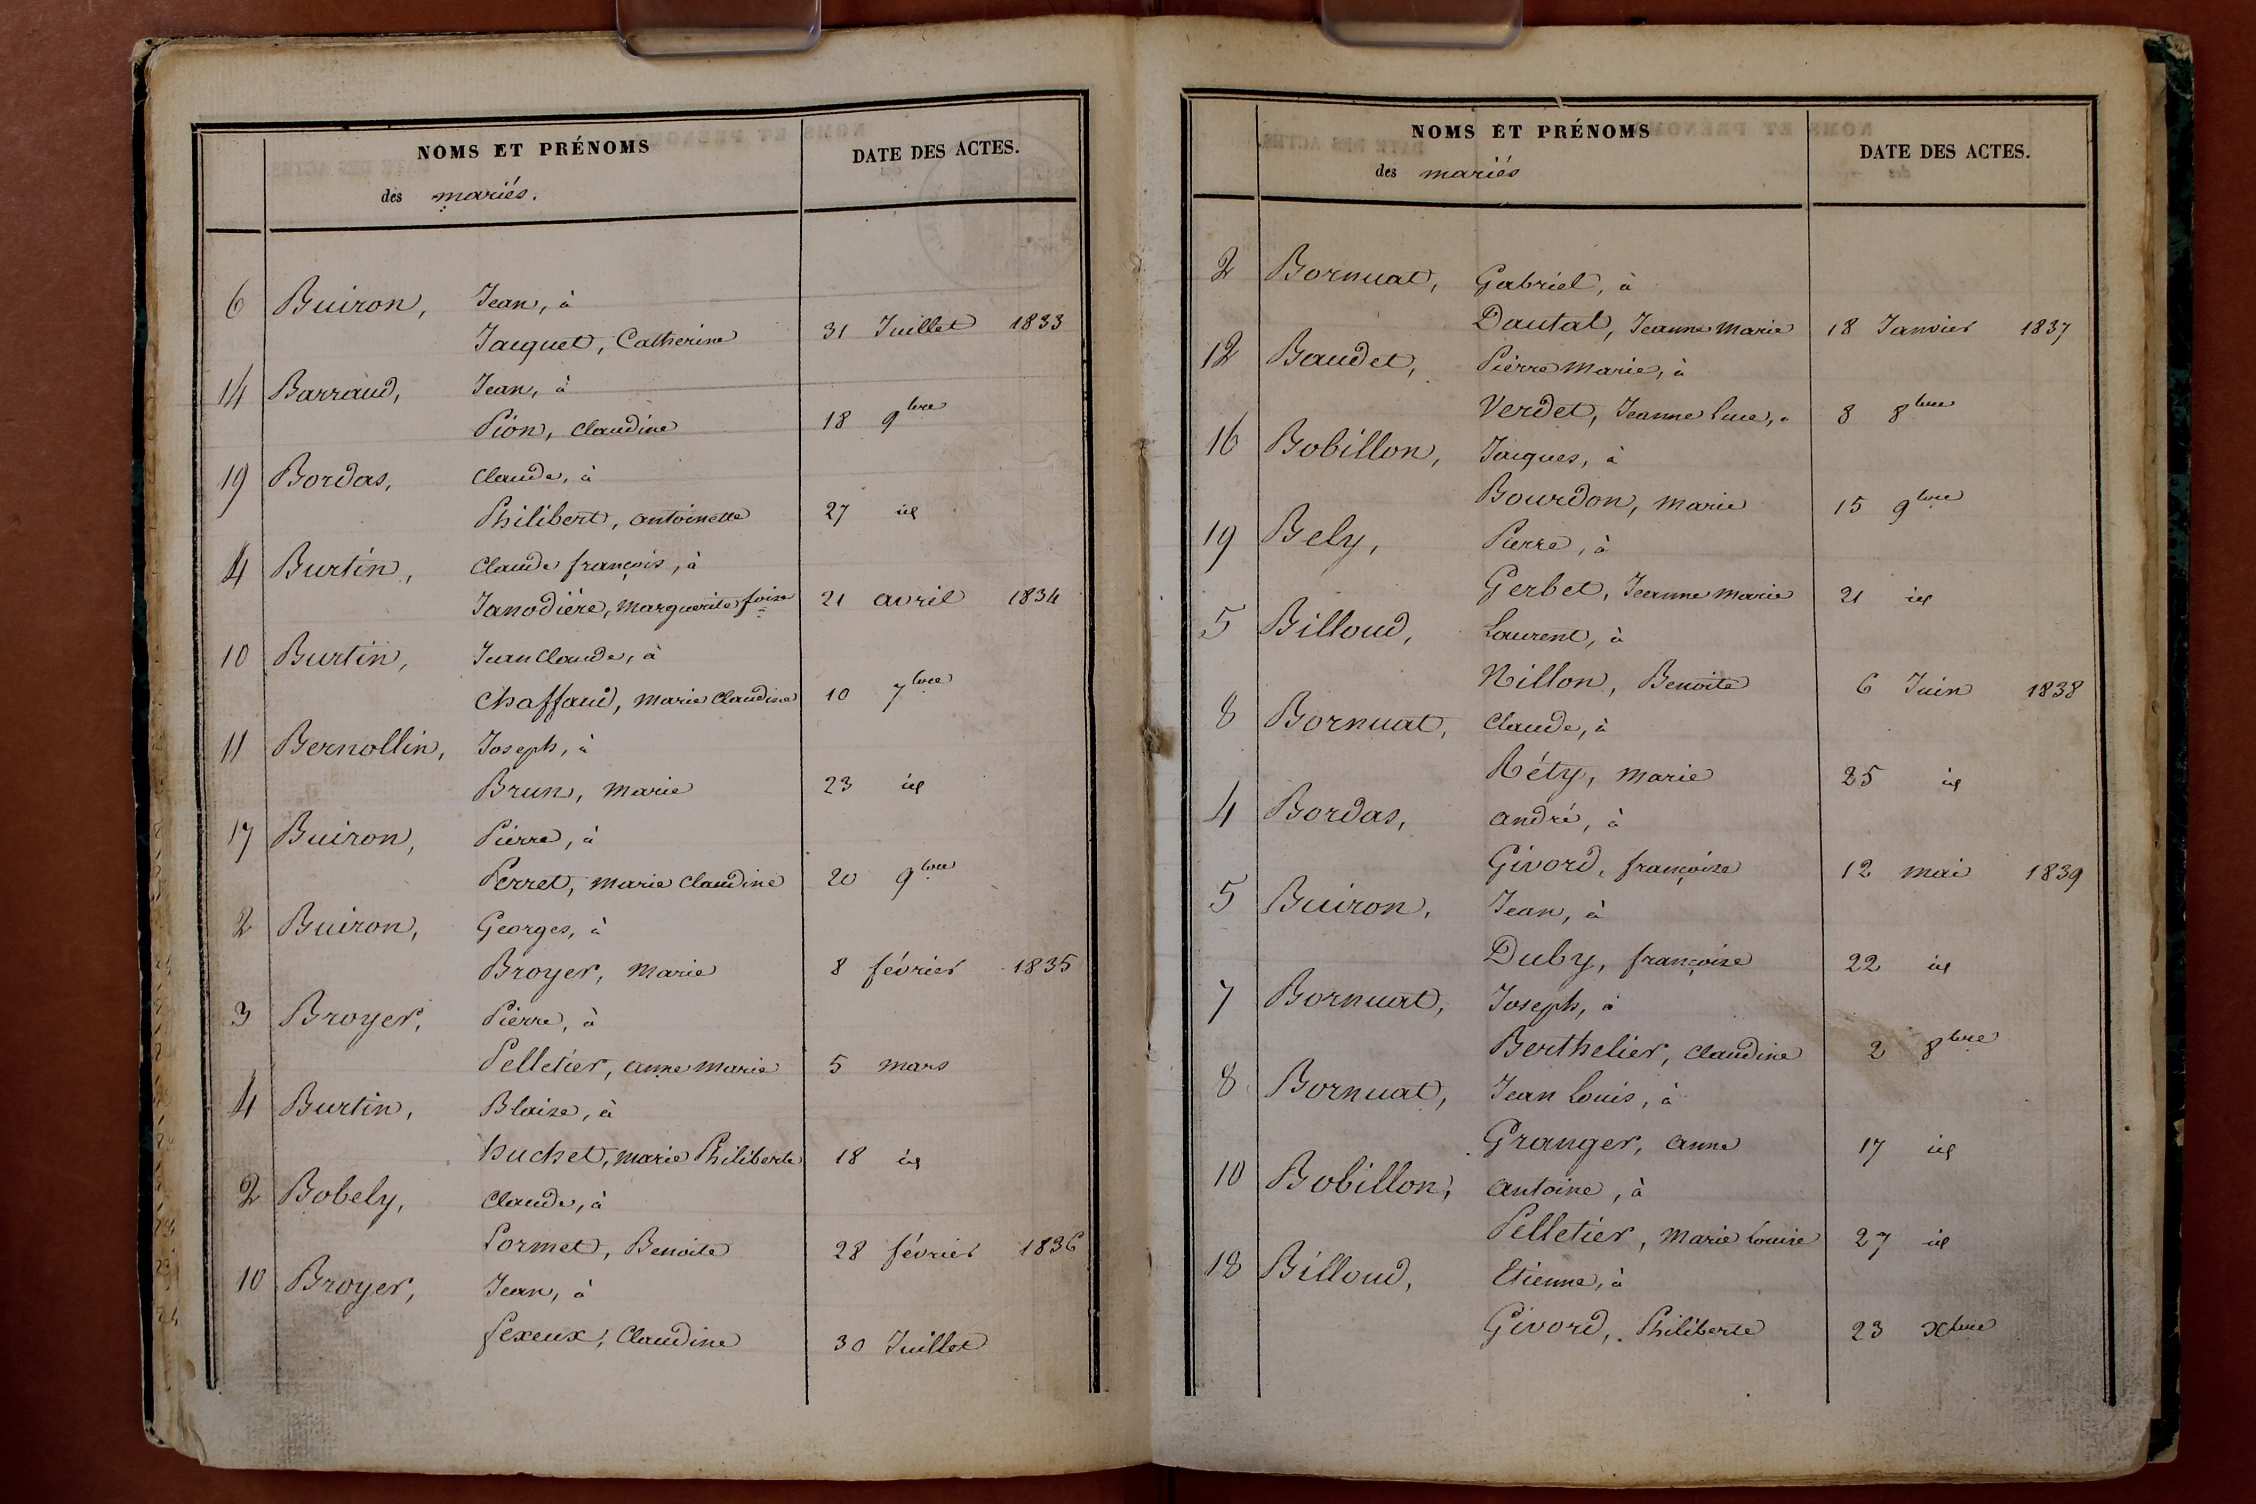 NOMS ET PRÉNOMS
des mariés.
DATE DES ACTES.
6 Buiron, Jean, à
Jacquet, Catherine 31 Juillet 1833
14 Barraud, Jean, à
Pion, Claudine 18 9bre
19 Bordas, Claude, à
Philibert, antoinette 27 id
4 Burtin, Claude françois, à
Janodière, Marguerite foise 21 avril 1834
10 Burtin, Jean Claude, à
Chaffaud, Marie Claudine 10 7bre
11 Bernollin, Joseph, à
Brun, Marie 23 id
17 Buiron, Pierre, à
Perret, Marie Claudine 20 9bre
2 Buiron, Georges, à
Broyer, Marie 8 février 1835
3 Broyer, Pierre, à
Pelletier, anne Marie 5 mars
4 Burtin, Blaise, à
huchet, marie Philiberte 18 id
2 Bobely, Claude, à
Pormet, Benoite 28 février 1836
10 Broyer, Jean, à
Claudine 30 Juillet
NOMS ET PRÉNOMS
des mariés
DATE DES ACTES.
2 Bornuat, Gabriel, à
Dautal, Jeanne Marie 18 Janvier 1837
12 Baudet, Pierre Marie, à
Verdet, Jeanne Luce, 3 8bre
16 Bobillon, Jacques, à
Bourdon, Marie 15 9bre
19 Bely, Pierre, à
Gerbet, Jeanne Marie 21 id
5 Billoud, Laurent, à
Nillon, Benoite 6 Juin 1838
8 Bornuat, Claude, à
Réty, Marie 25 id
4 Bordas, andré, à
Givord, françoise 12 mai 1839
5 Buiron, Jean, à
Duby, françoise 22 id
7 Bornuat, Joseph, à
Berthelier, Claudine 2 8bre
8 Bornuat, Jean Louis, à
Granger, anne 17 id
10 Bobillon, antoine, à
Pelletier, Marie Louise 27 id
12 Billoud, Etienne, à
Givord, Philiberte 23 Xbre